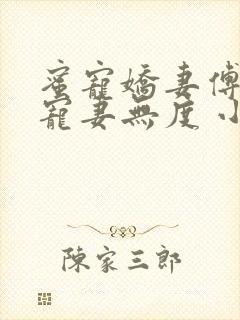 蜜寵嬌妻傅
寵妻無度小
陳家三郎